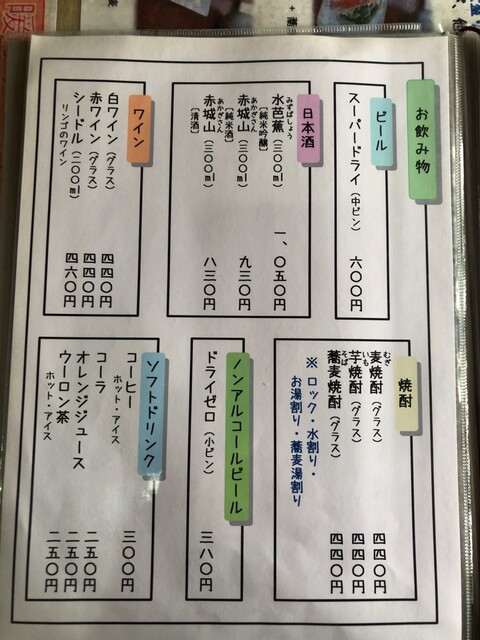 お飲み物
ビール
スーパードライ（中ビン） 六〇〇円
日本酒
みずばしょう
水芭蕉（三〇〇ml） 一、〇五〇円
［純米吟醸］
あかぎさん
赤城山（三〇〇ml） 九三〇円
［純米酒］
あかぎさん
赤城山（三〇〇ml） 八三〇円
［清酒］
ワイン
白ワイン（グラス） 四四〇円
赤ワイン（グラス） 四四〇円
シードル（二〇〇ml） 四六〇円
リンゴのワイン
焼酎
むぎ
麦焼酎（グラス） 四四〇円
いも
芋焼酎（グラス） 四四〇円
そば
蕎麦焼酎（グラス） 四四〇円
※ロック・水割り・
お湯割り・蕎麦湯割り
ノンアルコールビール
ドライゼロ（小ビン） 三八〇円
ソフトドリンク
コーヒー 三〇〇円
ホット・アイス
コーラ 二五〇円
オレンジジュース 二五〇円
ウーロン茶 二五〇円
ホット・アイス